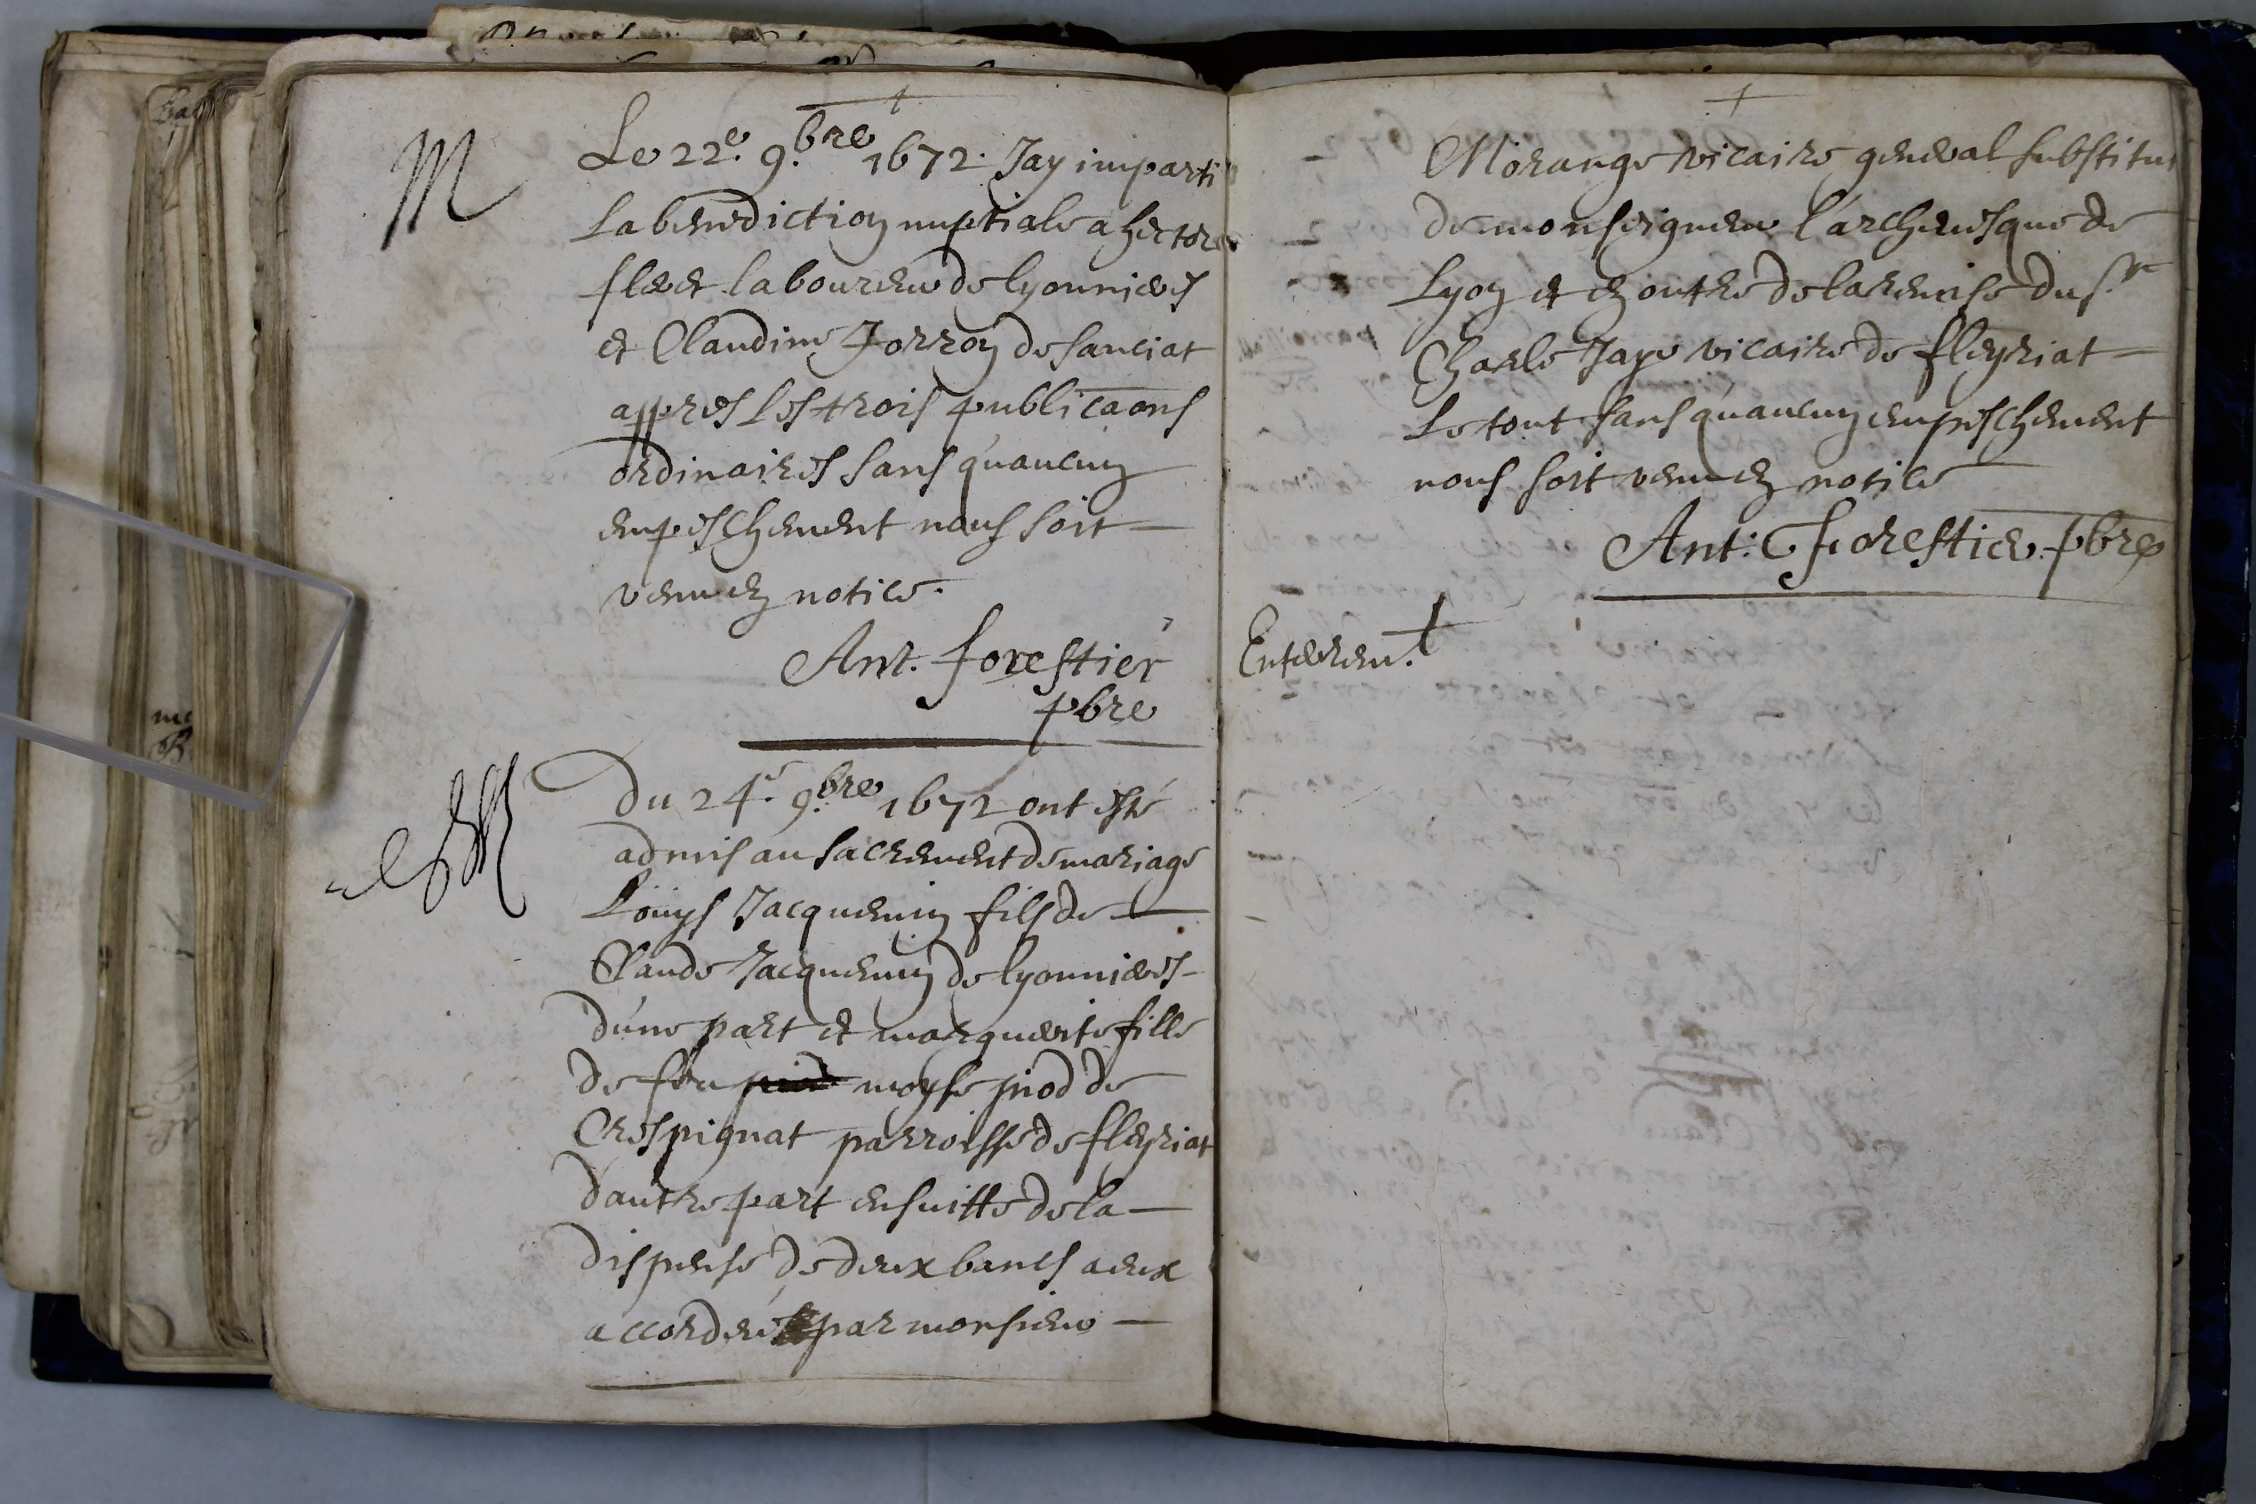 M
Le 22e. 9.bre 1672. Jay imparti
La benediction nuptiale a hector
fleet laboureur de lyonnieres
et Claudine Forron de sanciat
appres les trois publicaons
ordinaires sans qu'aucun
empeschement nous soit
venu en notice.
Ant. forestier
pbre
M
Du 24e. 9.bre 1672 ont esté
admis au sacrement de mariage
Louys Jacquemin fils de
Claude Jacquemin de lyonnieres
d'une part et marguerite fille
de feu moyse piod de
Crespignat parroisse de fleyriat
d'autre part ensuitte de la
dispense de deux bancs a eux
accordée par monsieur
Morange vicaire general substitut
de monseigneur l'archevesque de
Lyon et en outre de la remise du sr
Charle Jaye vicaire de fleyriat
Le tout sans qu'aucun empeschement
nous soit venu en notice
Ant: forestier. pbre
Enterem.t